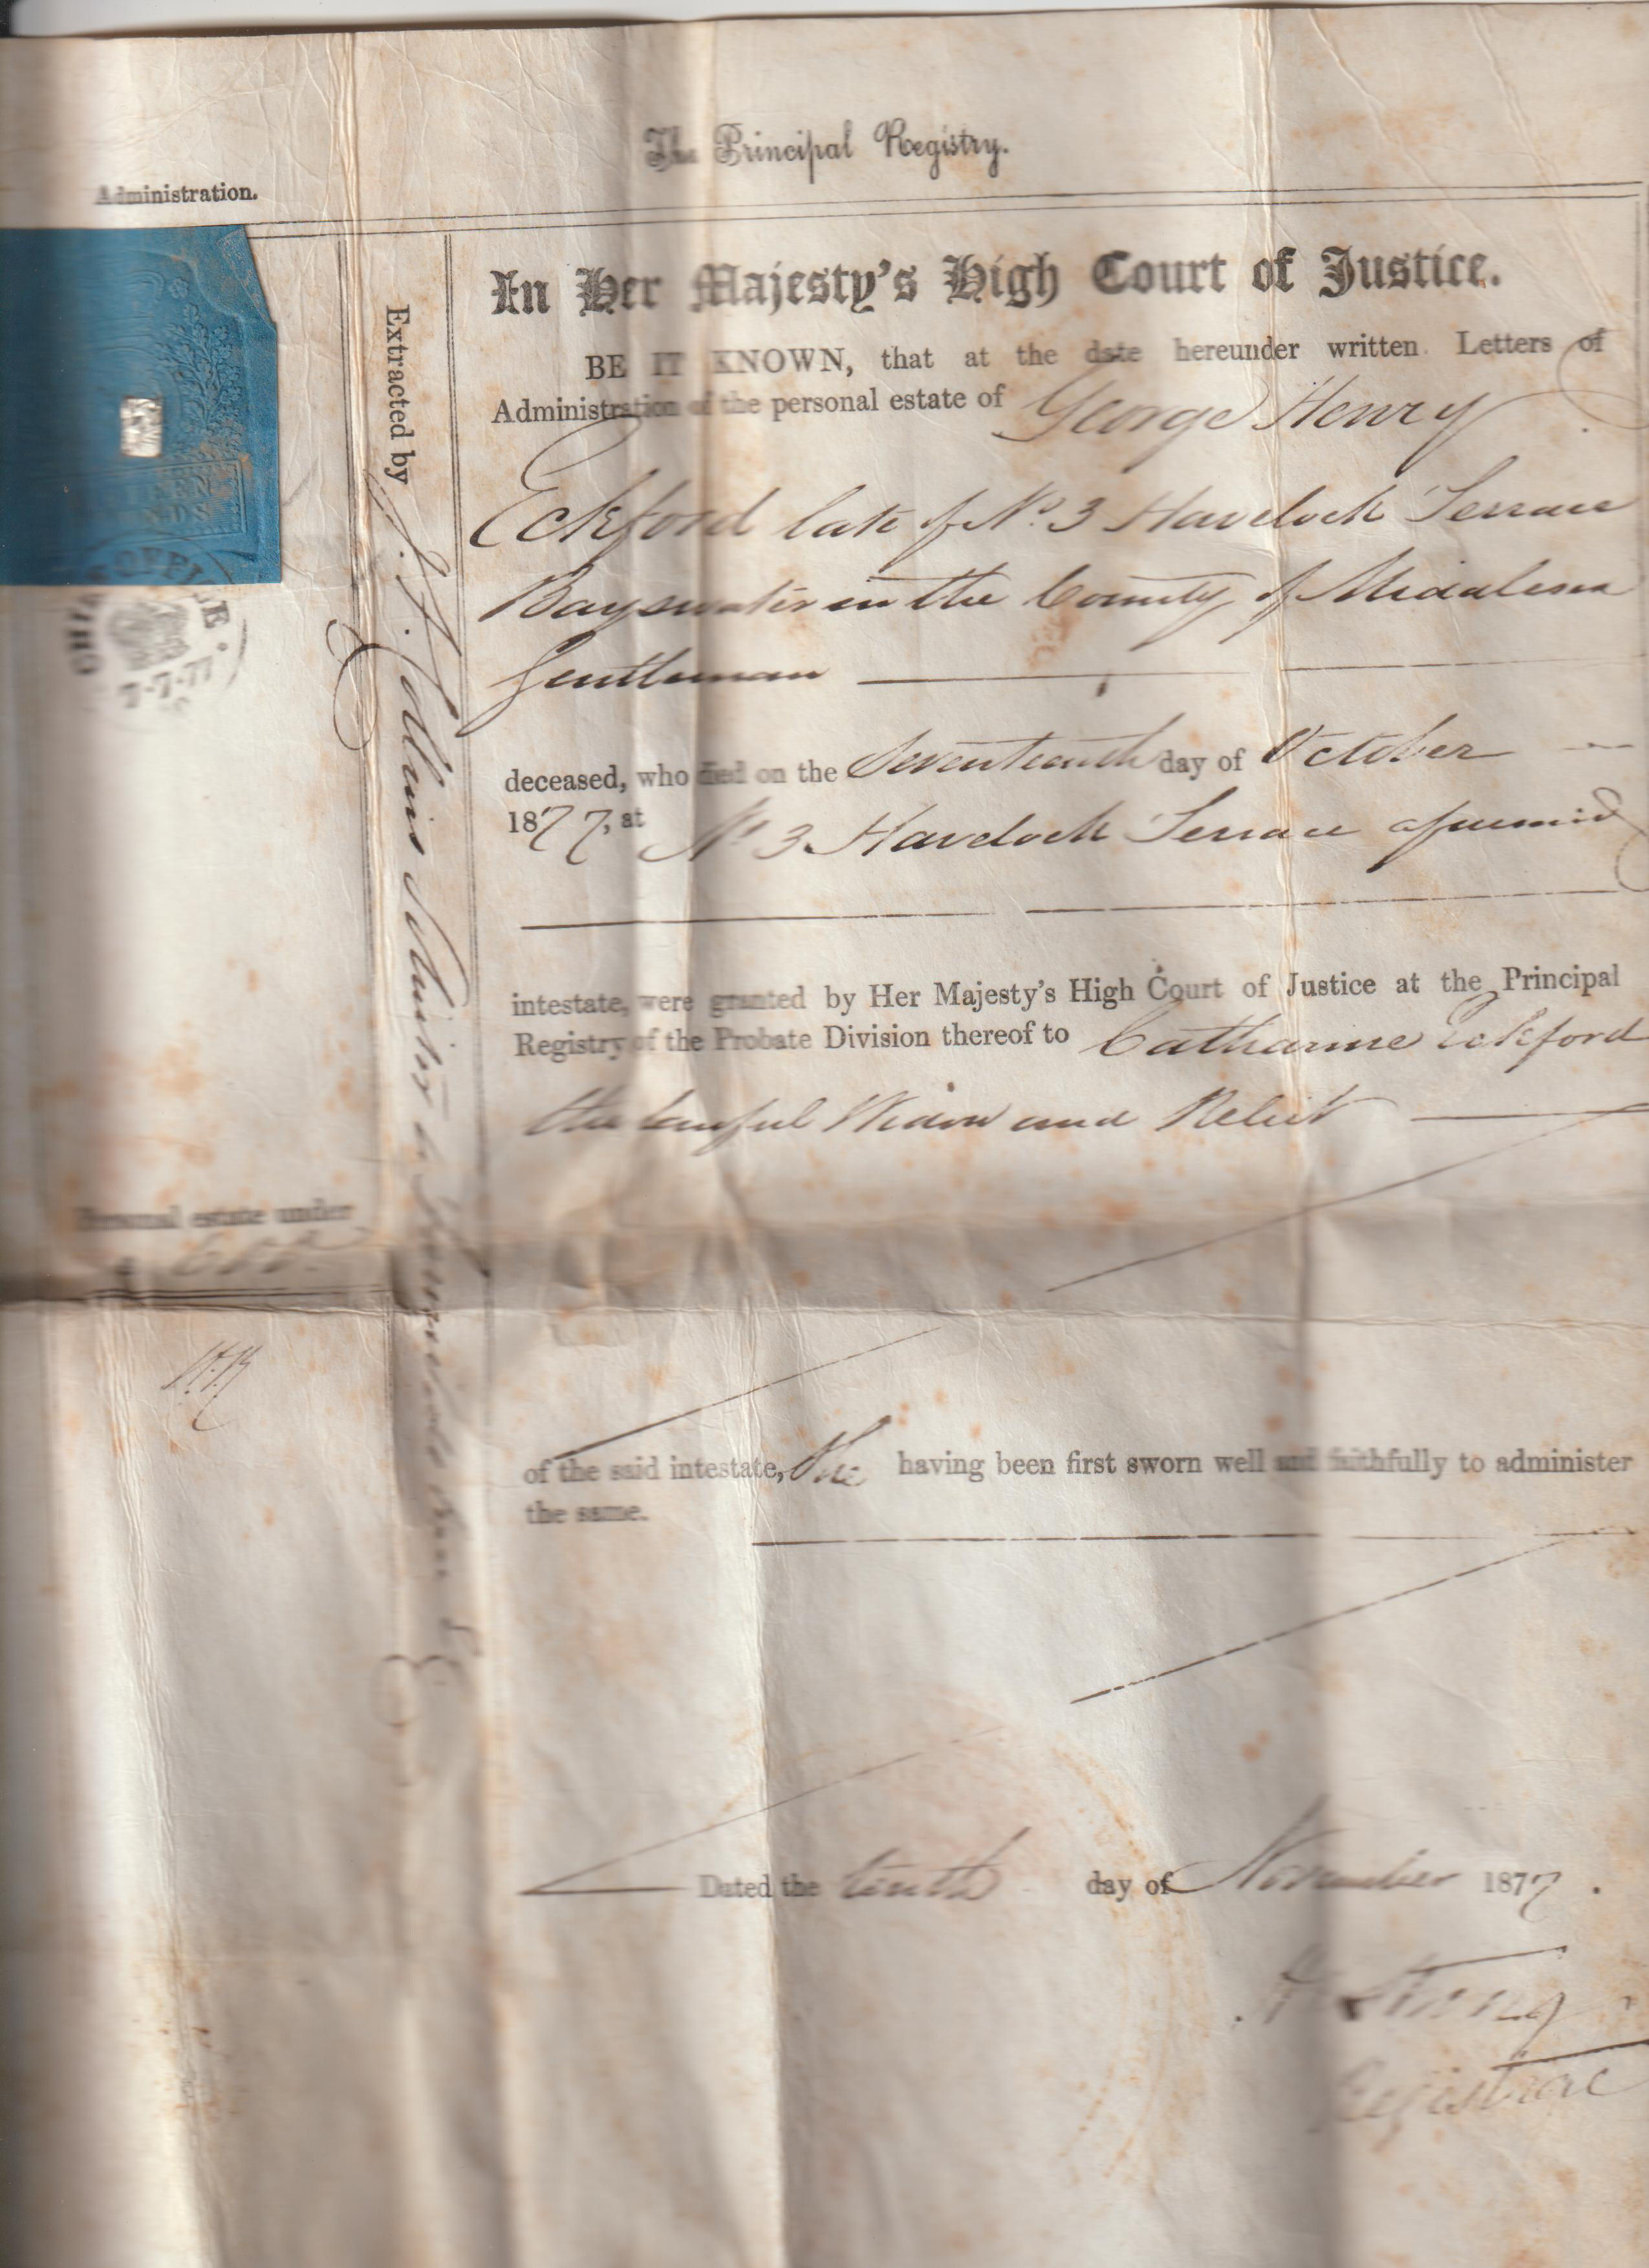 The Principal Registry.
Administration.
In Her Majesty's High Court of Justice.
BE IT KNOWN, that at the date hereunder written Letters of
Administration of the personal estate of George Henry
Eckford late of No. 3 Havelock Terrace
Bayswater in the County of Middlesex
Gentleman
deceased, who died on the Seventeenth day of October
1877, at No 3 Havelock Terrace aforesaid
intestate, were granted by Her Majesty's High Court of Justice at the Principal
Registry of the Probate Division thereof to Catharine Eckford
the lawful Widow and Relict
of the said intestate, She having been first sworn well and faithfully to administer
the same.
Dated the tenth day of November 1877.
Registrar
Extracted by
Solicitor
Personal estate under
£
7.7.77